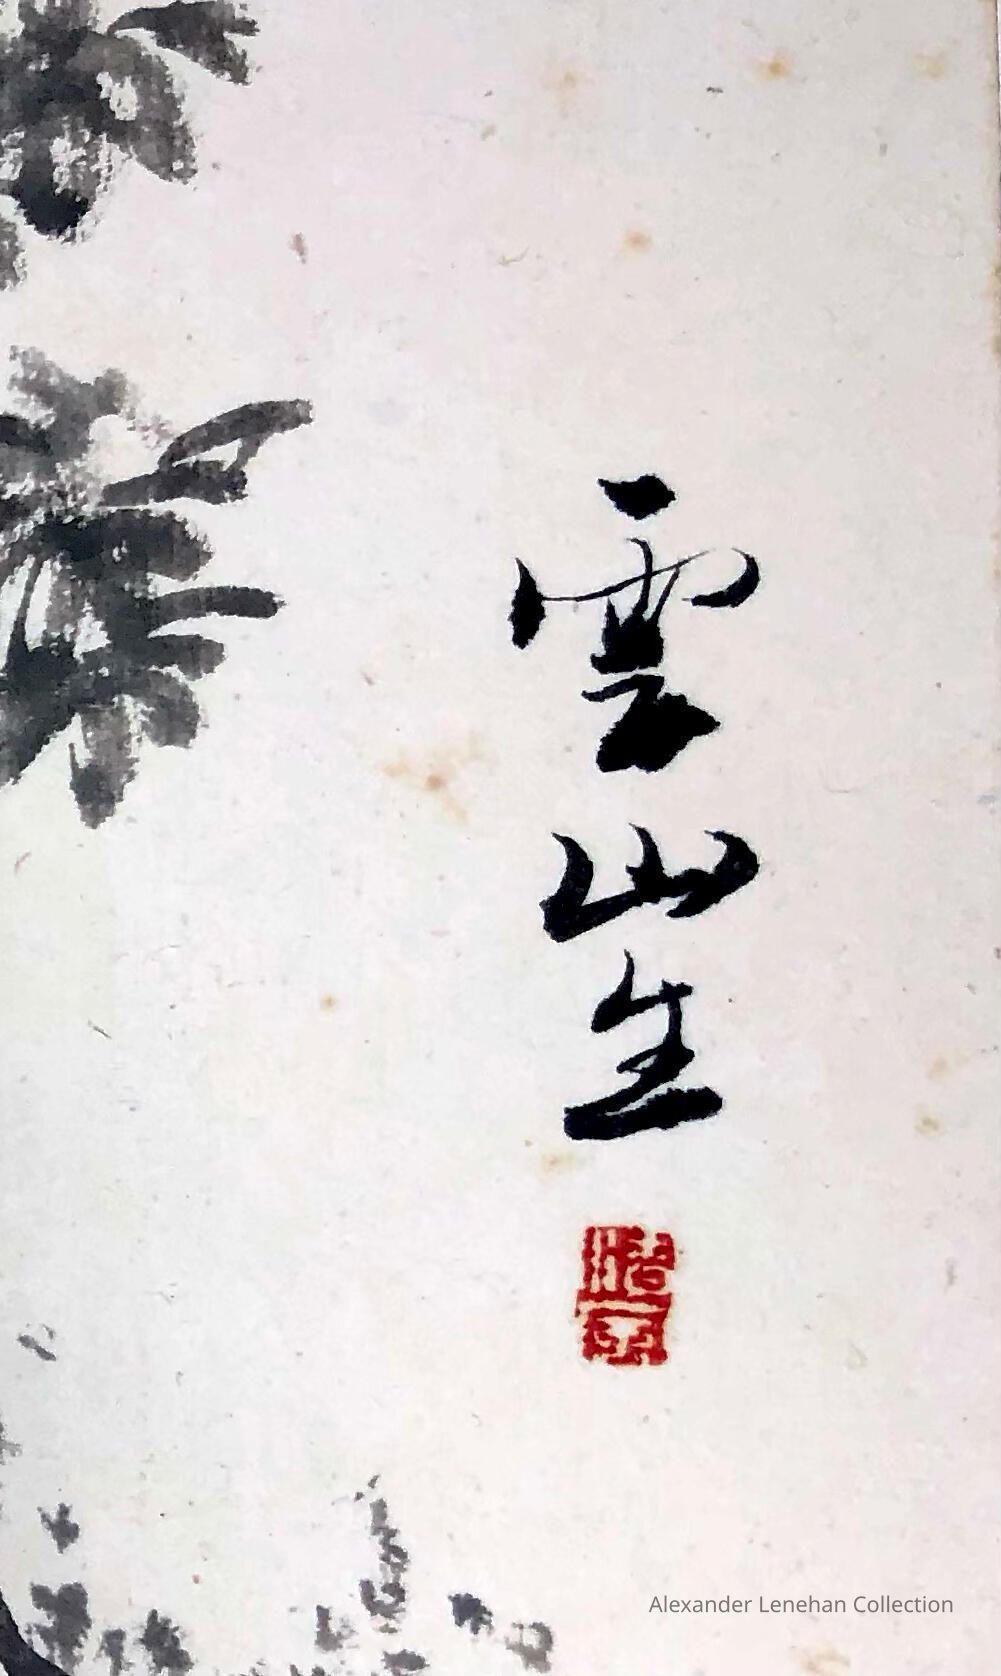 雲山生
Alexander Lenehan Collection